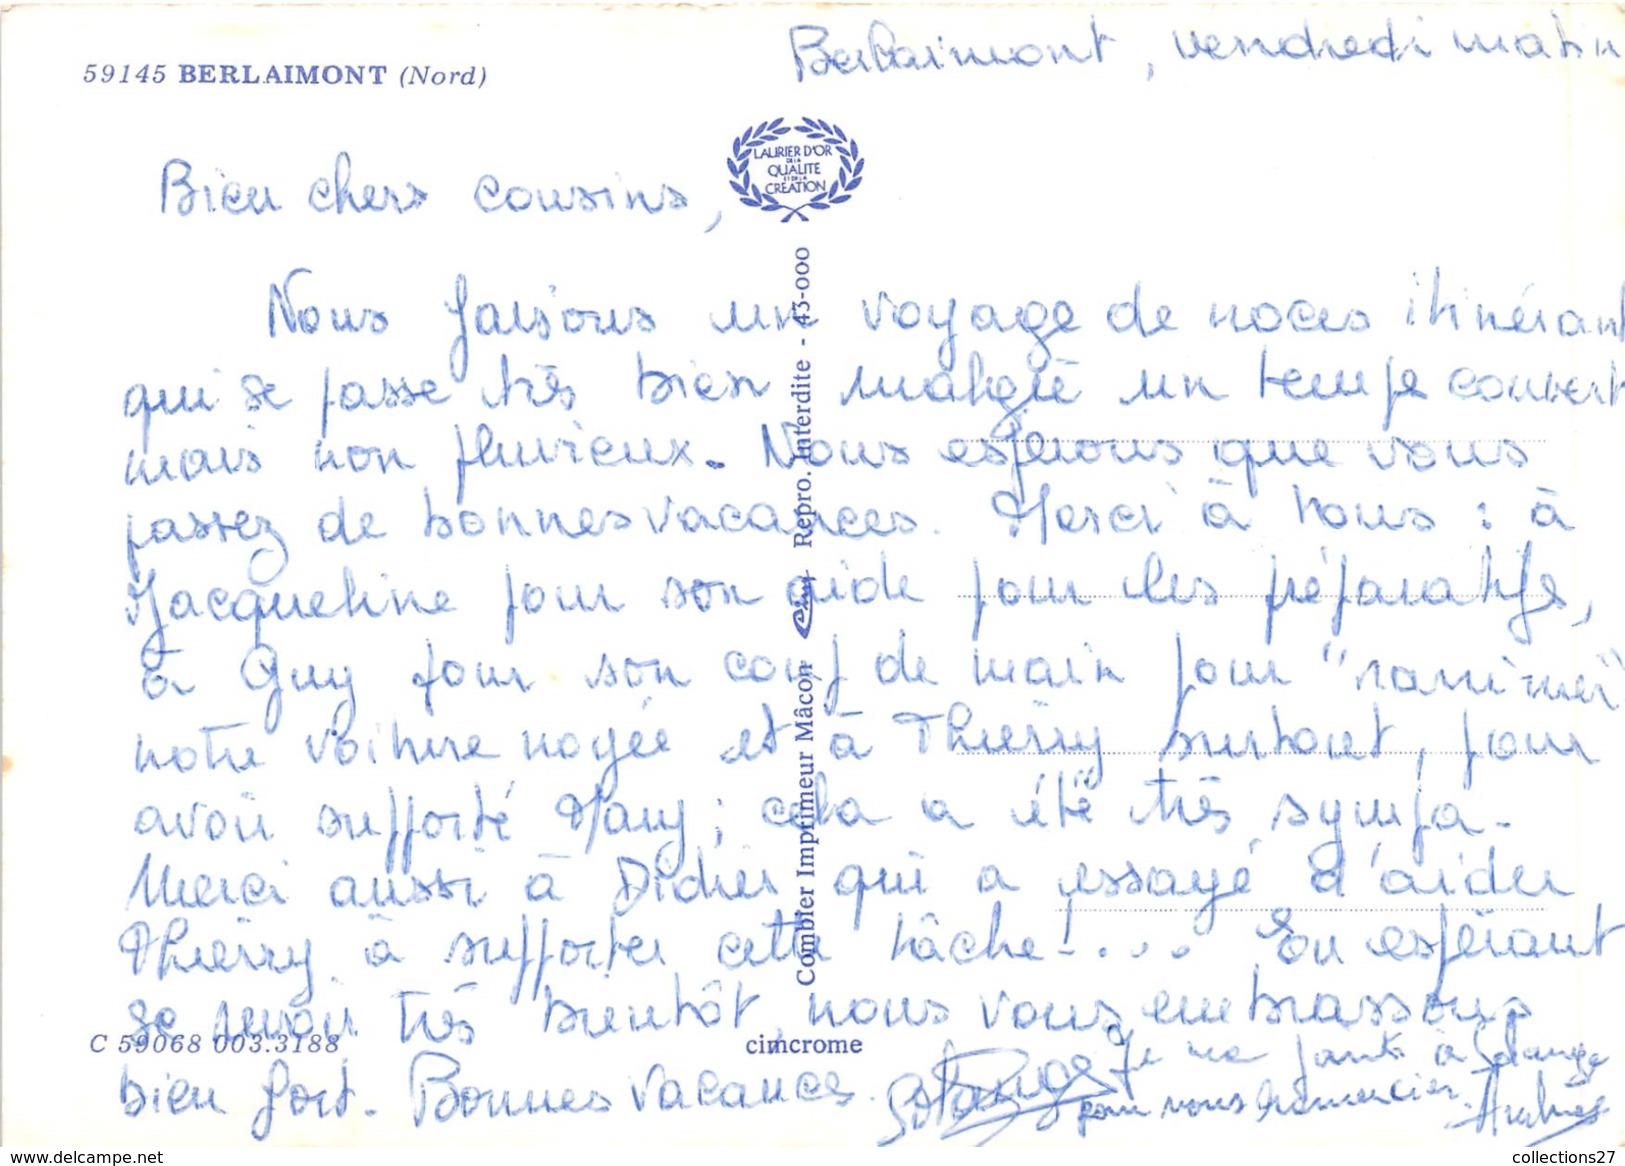 59145 BERLAIMONT (Nord)
Berlaimont, vendredi matin
LAURIER D'OR
DE LA
QUALITE
ET DE LA
CREATION
Bien chers cousins,
Nous faisons un voyage de noces itinérant
qui se passe très bien malgré un temps couvert
mais non pluvieux. Nous espérons que vous
passez de bonnes vacances. Merci à tous : à
Jacqueline pour son aide pour les préparatifs,
à Guy pour son coup de main pour "ranimer"
notre voiture noyée et à Thierry surtout, pour
avoir supporté Many ; cela a été très sympa.
Merci aussi à Didier qui a essayé d'aider
Thierry à supporter cette tâche !.... En espérant
se revoir très bientôt, nous vous embrassons
bien fort. Bonnes vacances.
Solange
Je me joints à Solange
pour vous remercier
C 59068 003.3188
cimcrome
Combier Imprimeur Mâcon Cim Repro. Interdite - 43-000
collections27